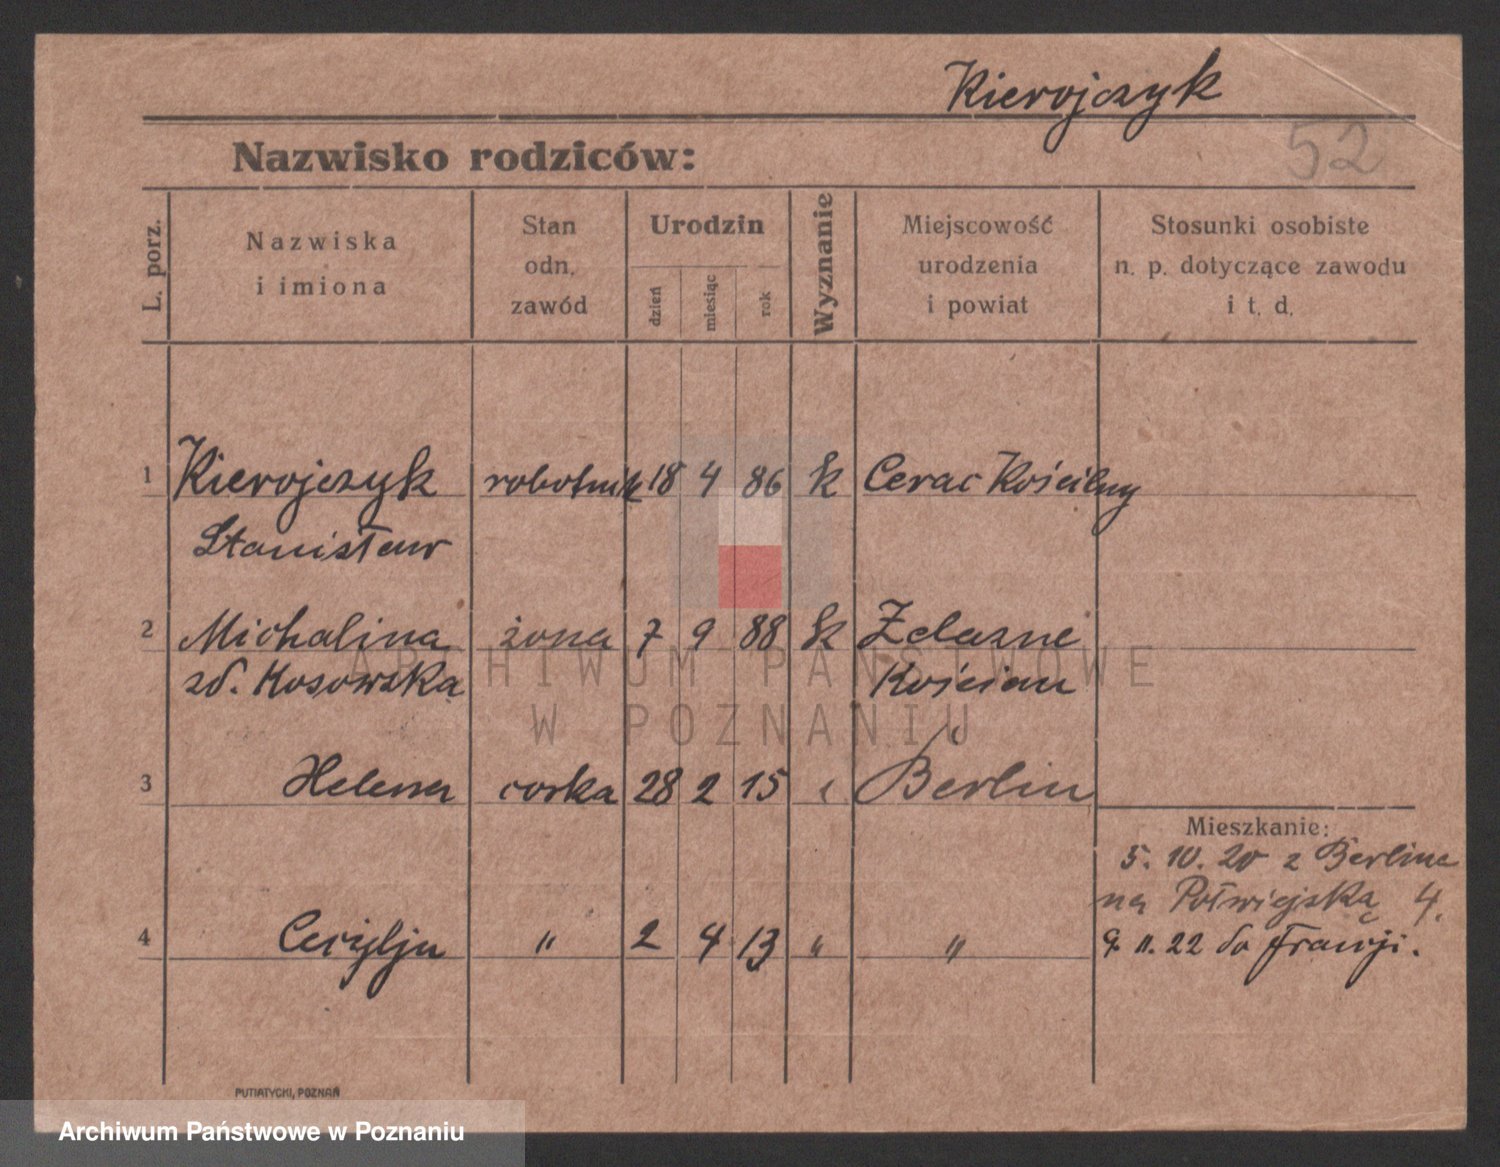 Kierojczyk
52
Nazwisko rodziców:
L. porz.
Nazwiska
i imiona
Stan
odn.
zawód
Urodzin
dzień
miesiąc
rok
Wyznanie
Miejscowość
urodzenia
i powiat
Stosunki osobiste
n. p. dotyczące zawodu
i t. d.
1 Kierojczyk robotnik 18 4 86 k Cerac Kościelny
Stanisław
2 Michalina żona 7 9 88 k Żelazne
zd. Kosowska Kościan
ARCHIWUM PAŃSTWOWE
W POZNANIU
3 Helena corka 28 2 15 Berlin
Mieszkanie:
5. 10. 20 z Berlina
na Półwiejską 4.
4 Cecylja " 2 4 13 " "
9. 11. 22 do Francji.
PUTIATYCKI, POZNAŃ
Archiwum Państwowe w Poznaniu